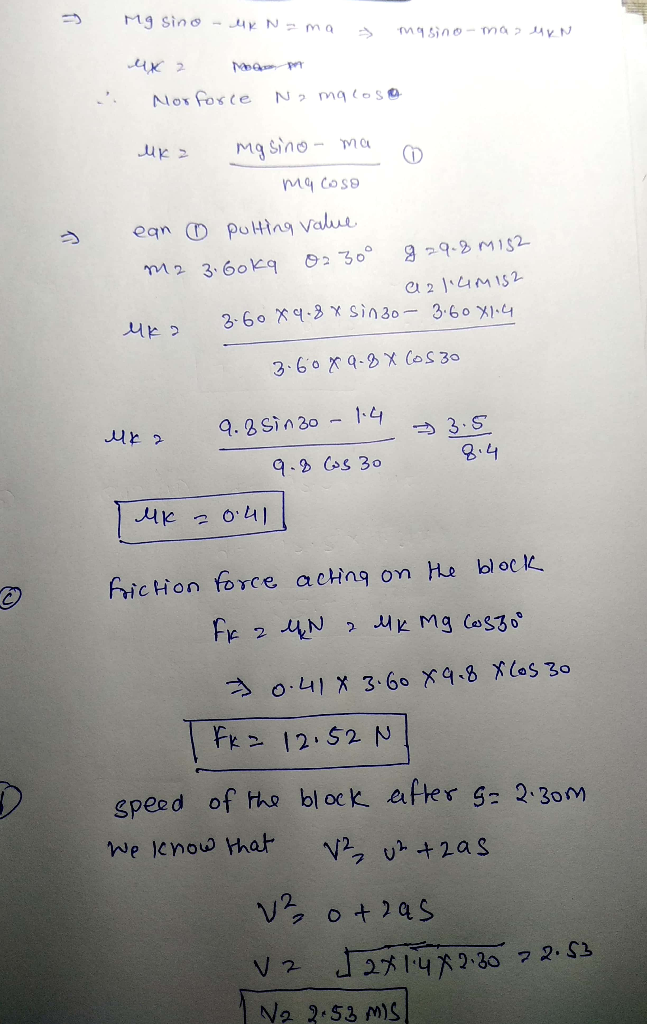 ⇒ Mg sinθ - μK N = ma ⇒ mg sinθ - ma = μK N
μK =
∴ Nor force N = mg cosθ
μK = mg sinθ - ma ①
mg cosθ
⇒ eqn ① putting value
m = 3.60 kg θ = 30° g = 9.8 m/s2
a = 1.4 m/s2
μK = 3.60 x 9.8 x sin30 - 3.60 x 1.4
3.60 x 9.8 x cos 30
μK = 9.8 sin30 - 1.4 ⇒ 3.5
9.8 cos 30 8.4
μK = 0.41
Ⓒ friction force acting on the block
FK = μKN = μK mg cos30°
⇒ 0.41 x 3.60 x 9.8 x cos 30
FK = 12.52 N
speed of the block after s = 2.30m
we know that v² = u² + 2as
v² = 0 + 2as
v = √2 x 1.4 x 2.30 = 2.53
V = 2.53 m/s